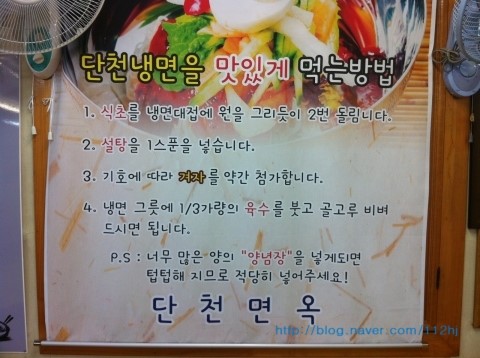 단천냉면을 맛있게 먹는방법
1. 식초를 냉면대접에 원을 그리듯이 2번 돌립니다.
2. 설탕을 1스푼을 넣습니다.
3. 기호에 따라 겨자를 약간 첨가합니다.
4. 냉면 그릇에 1/3가량의 육수를 붓고 골고루 비벼
드시면 됩니다.
P.S : 너무 많은 양의 "양념장"을 넣게되면
텁텁해 지므로 적당히 넣어주세요!
단천면옥
http://blog.naver.com/112hj